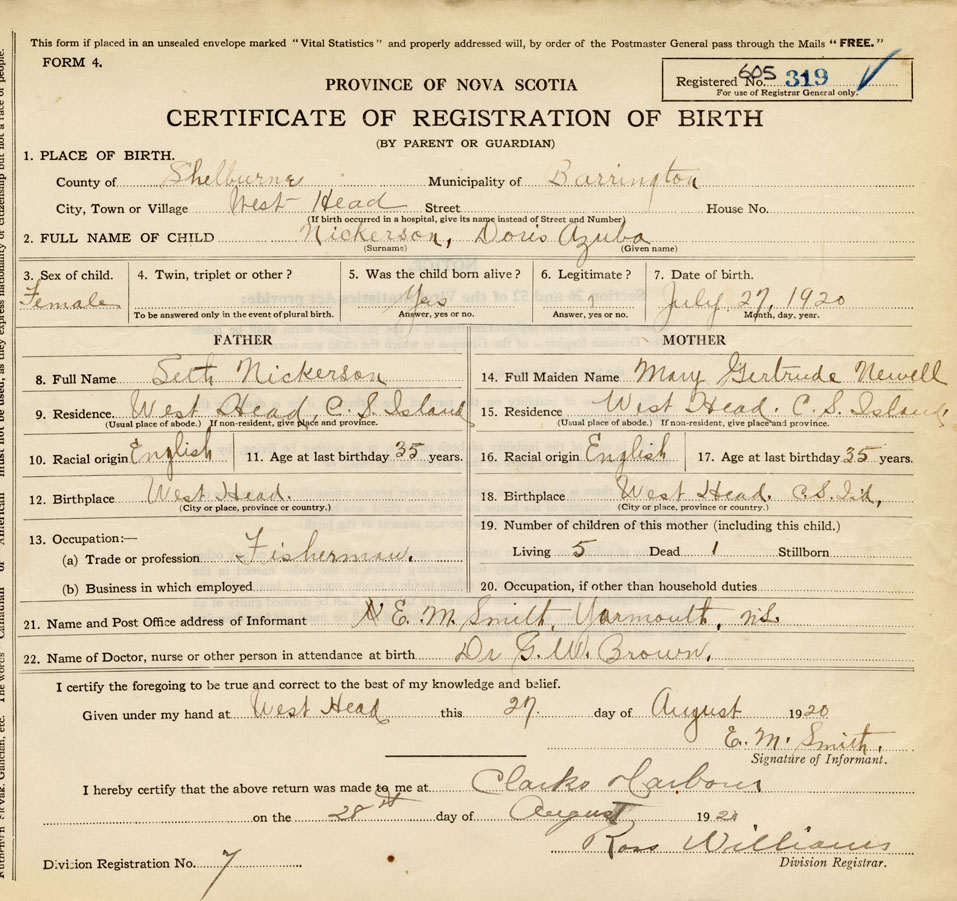 This form if placed in an unsealed envelope marked "Vital Statistics" and properly addressed will, by order of the Postmaster General pass through the Mails "FREE."
FORM 4.
Registered No. 605 319
For use of Registrar General only.
PROVINCE OF NOVA SCOTIA
CERTIFICATE OF REGISTRATION OF BIRTH
(BY PARENT OR GUARDIAN)
1. PLACE OF BIRTH.
County of Shelburne Municipality of Barrington
City, Town or Village West Head Street House No.
(If birth occurred in a hospital, give its name instead of Street and Number)
2. FULL NAME OF CHILD Nickerson, Doris Azuba
(Surname) (Given name)
3. Sex of child. 4. Twin, triplet or other? 5. Was the child born alive? 6. Legitimate? 7. Date of birth.
Female Yes July 27, 1920
To be answered only in the event of plural birth. Answer, yes or no. Answer, yes or no. Month, day, year.
FATHER MOTHER
8. Full Name Seth Nickerson 14. Full Maiden Name Mary Gertrude Newell
9. Residence. West Head, C. S. Island 15. Residence West Head. C. S. Island,
(Usual place of abode.) If non-resident, give place and province. (Usual place of abode.) If non-resident, give place and province.
10. Racial origin English 11. Age at last birthday 35 years. 16. Racial origin English 17. Age at last birthday 35 years.
12. Birthplace West Head. 18. Birthplace West Head. C.S. Isd,
(City or place, province or country.) (City or place, province or country.)
13. Occupation:— 19. Number of children of this mother (including this child.)
(a) Trade or profession Fisherman. Living 5 Dead 1 Stillborn
(b) Business in which employed 20. Occupation, if other than household duties
21. Name and Post Office address of Informant E. M. Smith, Yarmouth, N.S.
22. Name of Doctor, nurse or other person in attendance at birth Dr G. W. Brown.
I certify the foregoing to be true and correct to the best of my knowledge and belief.
Given under my hand at West Head this 27. day of August 1920
E. M. Smith.
Signature of Informant.
I hereby certify that the above return was made to me at Clarks Harbour
on the 28th day of August 1920
Ross Williams
Division Registrar.
Division Registration No. 7